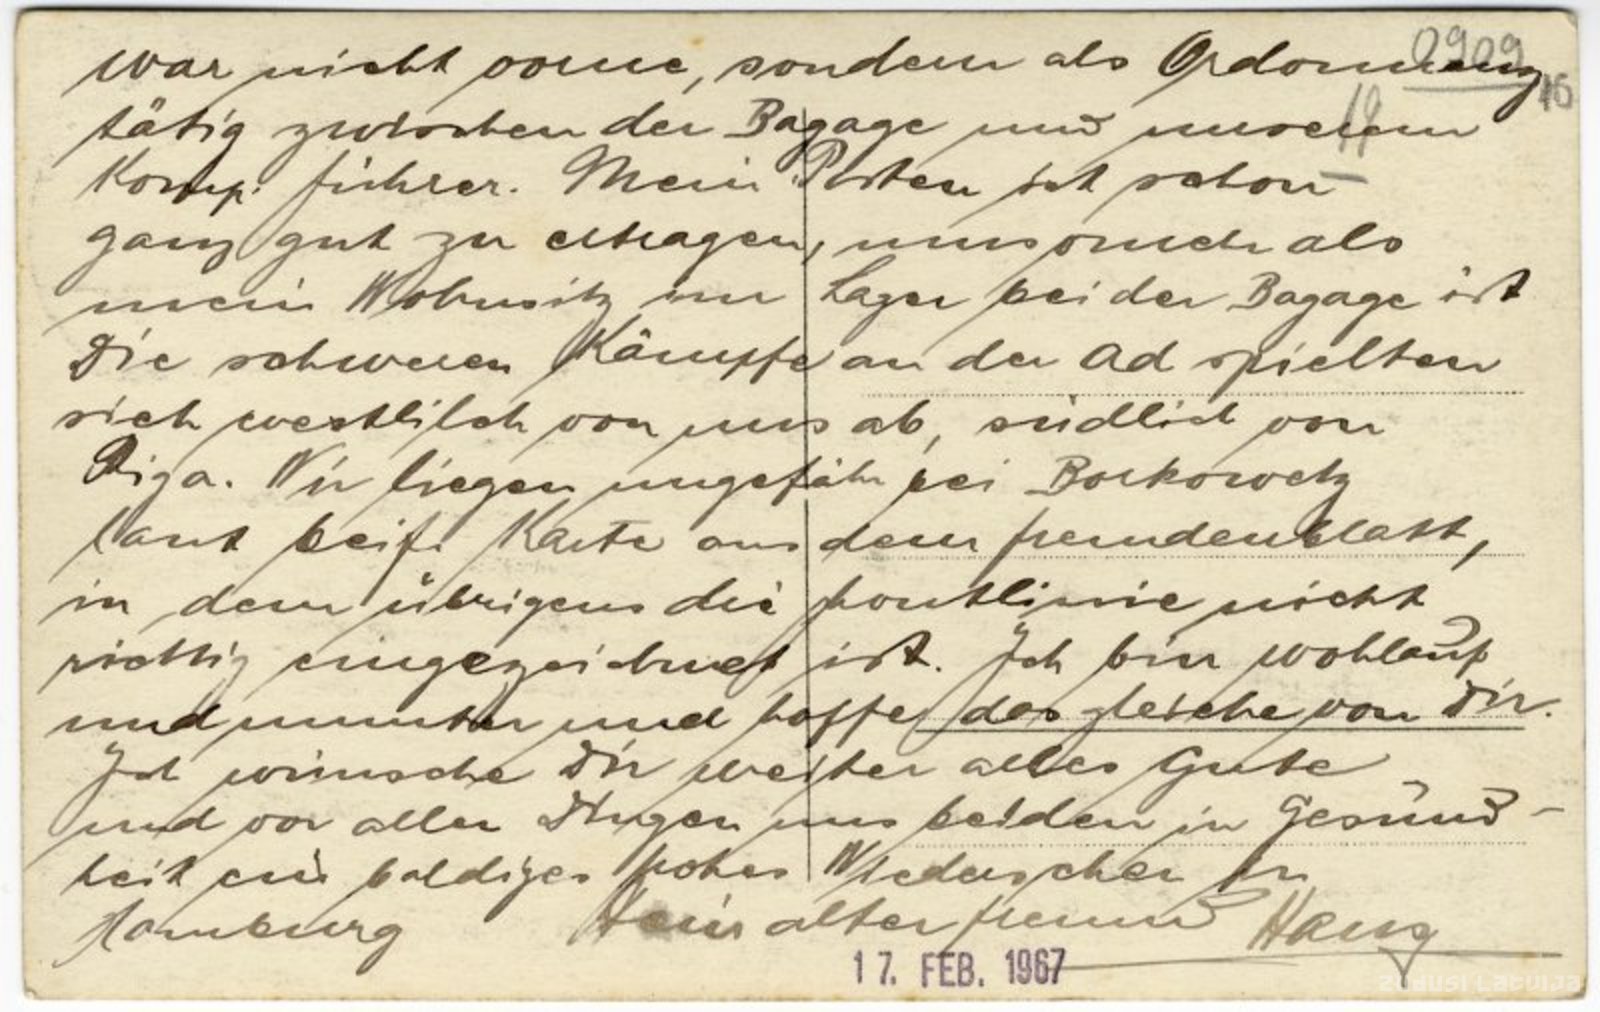 war nicht vorne, sondern als Ordonnanz
0909
16
19
tätig zwischen der Bagage und unserem
Komp. führer. Mein Posten ist schon
ganz gut zu ertragen, umsomehr als
mein Wohnsitz im Lager bei der Bagage ist
Die schweren Kämpfe an der Aa spielten
sich westlilch von uns ab, südlich von
Riga. Wir liegen ungefähr bei Borkowetz
laut beif. Karte aus dem Fremdenblatt,
in dem übrigens die Frontlinie nicht
richtig eingezeichnet ist. Ich bin wohlauf
und munter und hoffe das gleiche von Dir.
Ich wünsche Dir weiter alles Gute
und vor allen Dingen uns beiden in Gesund-
heit ein baldiges frohes Wiedersehen in
Hamburg Dein alter Freund Hans
17. FEB. 1967
zudusi Latvija